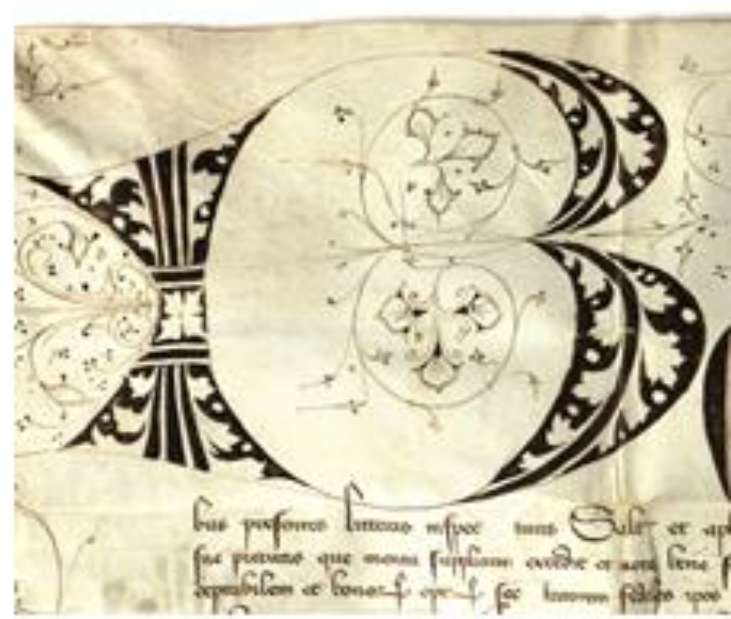 B
bus presentes litteras inspec turis Salt et apl
sue pietatis que merita supplicum excedit et vota bene
ceptabilem et bonor oper sec tatorem fideles